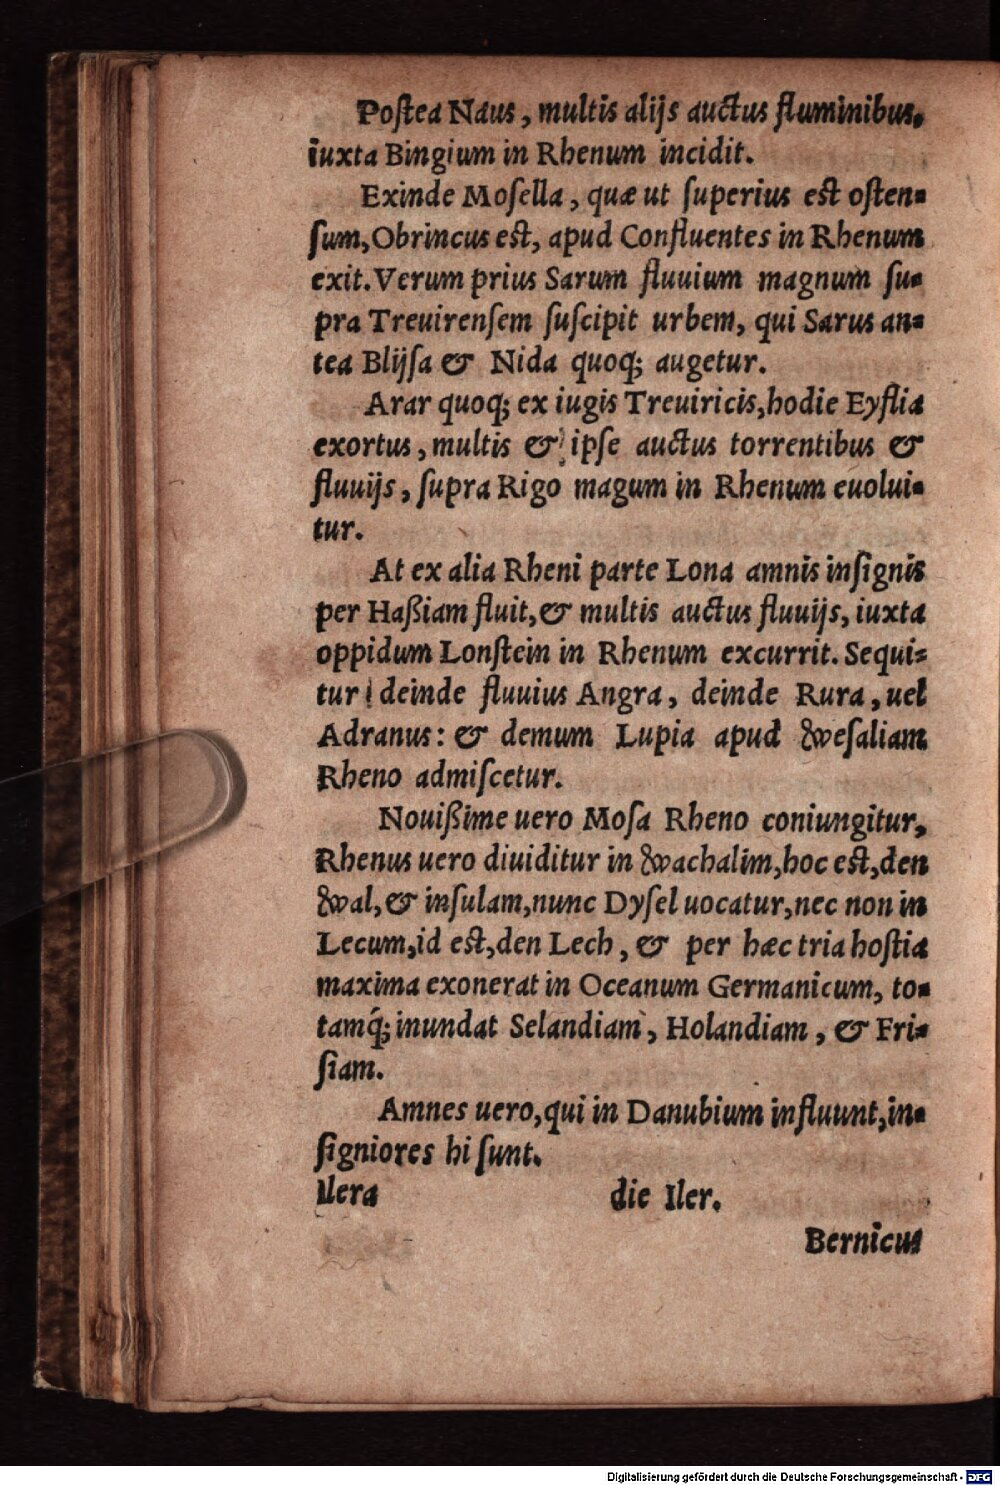 Poſtea Naus, multis alijs auctus fluminibus,
iuxta Bingium in Rhenum incidit.
Exinde Moſella, quæ ut ſuperius est oſten=
ſum, Obrincus est, apud Confluentes in Rhenum
exit. Verum prius Sarum fluuium magnum ſu=
pra Treuirenſem ſuſcipit urbem, qui Sarus an=
tea Blijſa & Nida quoq; augetur.
Arar quoq; ex iugis Treuiricis, hodie Eyflia
exortus, multis & ipſe auctus torrentibus &
fluuijs, ſupra Rigo magum in Rhenum euolui=
tur.
At ex alia Rheni parte Lona amnis inſignis
per Haßiam fluit, & multis auctus fluuijs, iuxta
oppidum Lonſtein in Rhenum excurrit. Sequi=
tur deinde fluuius Angra, deinde Rura, uel
Adranus: & demum Lupia apud Weſaliam
Rheno admiſcetur.
Nouißime uero Moſa Rheno coniungitur,
Rhenus uero diuiditur in Wachalim, hoc est, den
Wal, & inſulam, nunc Dyſel uocatur, nec non in
Lecum, id est, den Lech, & per hæc tria hoſtia
maxima exonerat in Oceanum Germanicum, to=
tamq́; inundat Selandiam, Holandiam, & Fri=
ſiam.
Amnes uero, qui in Danubium influunt, in=
ſigniores hi ſunt.
Ilera die Iler.
Bernicus
Digitalisierung gefördert durch die Deutsche Forschungsgemeinschaft - DFG